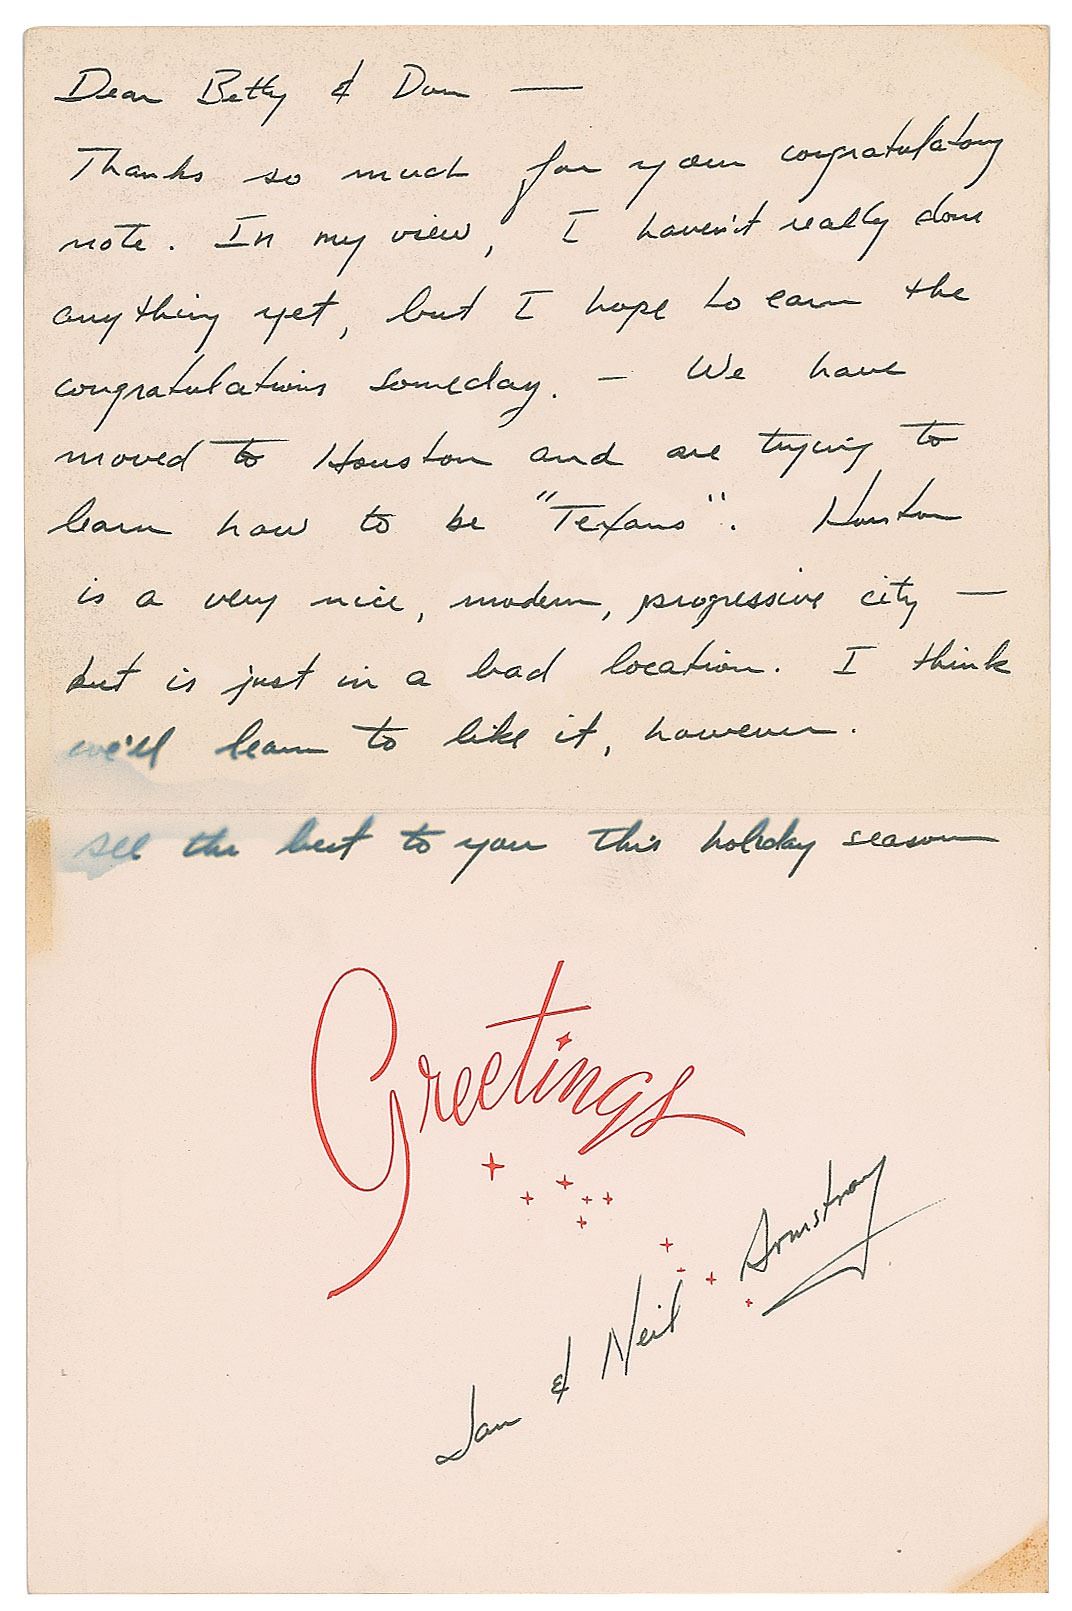 Dear Betty & Don —
Thanks so much for your congratulatory
note. In my view, I haven't really done
anything yet, but I hope to earn the
congratulations someday. – We have
moved to Houston and are trying to
learn how to be "Texans". Houston
is a very nice, modern, progressive city —
but is just in a bad location. I think
we'll learn to like it, however.
All the best to you this holiday season
Greetings
Jan & Neil Armstrong